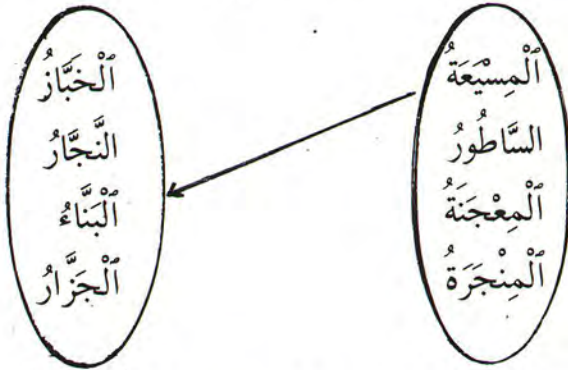 ٱلْمِسْيَعَةُ
السَّاطُورُ
ٱلْمِعْجَنَةُ
ٱلْمِنْجَرَةُ
ٱلْخَبَّازُ
النَّجَّارُ
ٱلْبَنَّاءُ
ٱلْجَزَّارُ